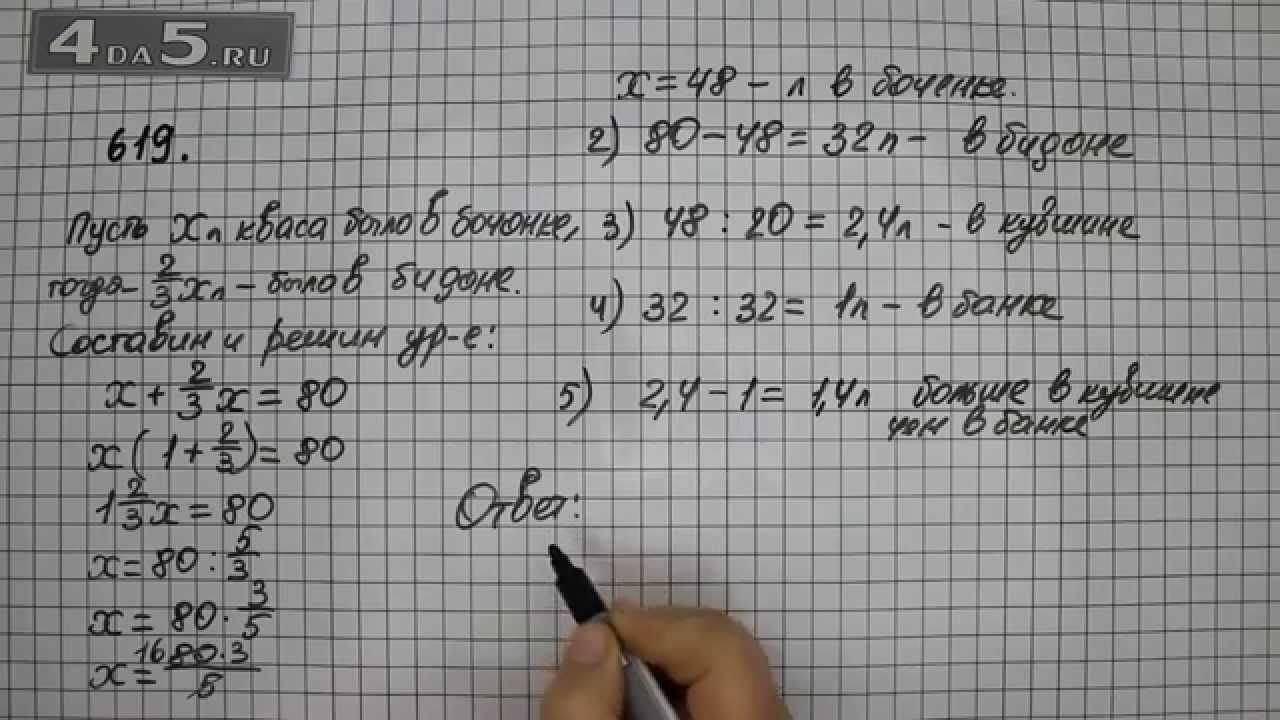 4DA5.RU
619.
Пусть xл кваса было в бочонке,
тогда – 2/3 xл – было в бидоне.
Составим и решим ур-е:
x + 2/3 x = 80
x(1 + 2/3) = 80
1 2/3 x = 80
x = 80 : 5/3
x = 80 · 3/5
x = 16 80·3/5
x = 48 – л в боченке.
2) 80 – 48 = 32л – в бидоне
3) 48 : 20 = 2,4л – в кувшине
4) 32 : 32 = 1л – в банке
5) 2,4 – 1 = 1,4л больше в кувшине
чем в банке
Ответ: